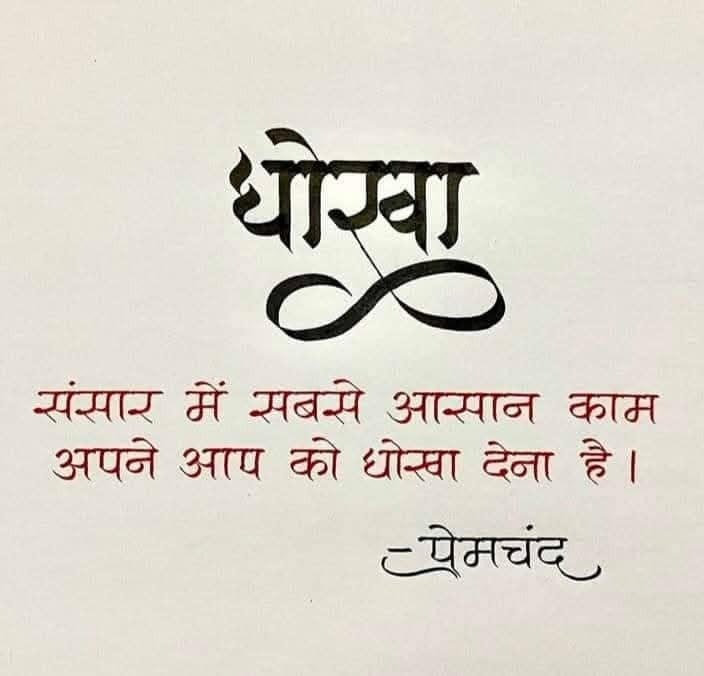 धोखा
संसार में सबसे आसान काम
अपने आप को धोखा देना है।
-प्रेमचंद